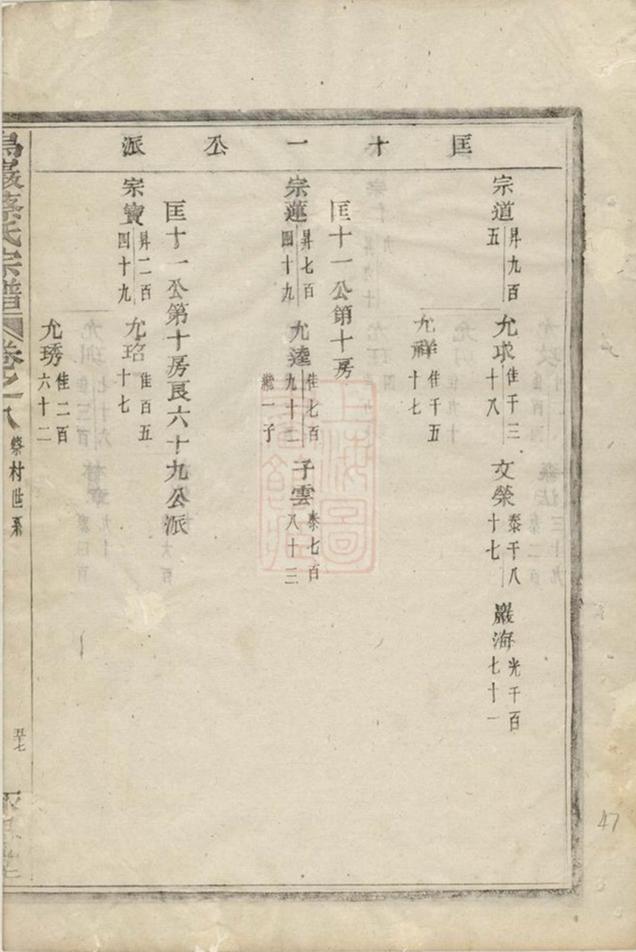 匡十一公派
宗道 昇九百五 允求 隹千三十八 文榮 泰千八十七 巖海 光千百七十一
允祥 隹千五十七
匡十一公第十房
宗蓮 昇七百四十九 允逵 隹七百九十二 繼一子 子雲 泰七百八十三
匡十一公第十房良六十九公派
宗寶 昇二百四十九 允珞 隹百五十七
允琇 隹二百六十二
烏巖蔡氏宗譜 卷之十八 蔡村世系 五十七
47